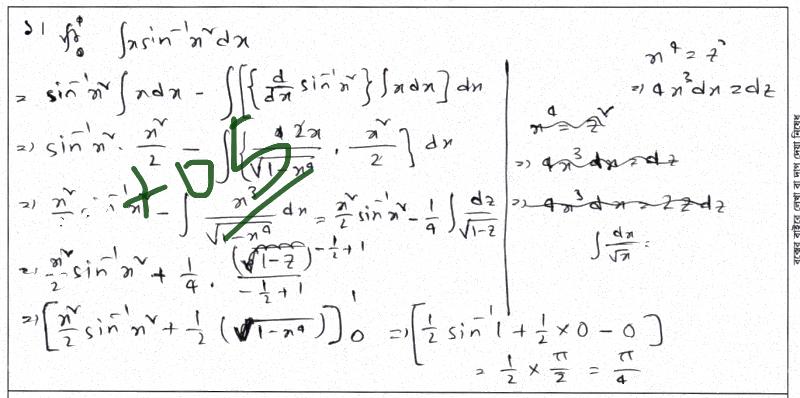 ১। ∫x sin⁻¹x² dx
= sin⁻¹x² ∫x dx − ∫[{d/dx sin⁻¹x²} ∫x dx] dx
=) sin⁻¹x² · x²/2 − ∫{2x/√(1−x⁴) · x²/2} dx
=) x²/2 sin⁻¹x² − ∫ x³/√(1−x⁴) dx = x²/2 sin⁻¹x² − 1/4 ∫ dz/√(1−z)
=) x²/2 sin⁻¹x² + 1/4 · (1−z)^(−1/2+1)/(−1/2+1)
=) [x²/2 sin⁻¹x² + 1/2 (√(1−x⁴))]₀¹ =) [1/2 sin⁻¹1 + 1/2 × 0 − 0]
= 1/2 × π/2 = π/4
+05
x⁴ = z
=) 4x³dx = dz
x⁴ = z²
=) 4x³dx = dz
=) 4x³dx = 2z dz
∫ dx/√x =